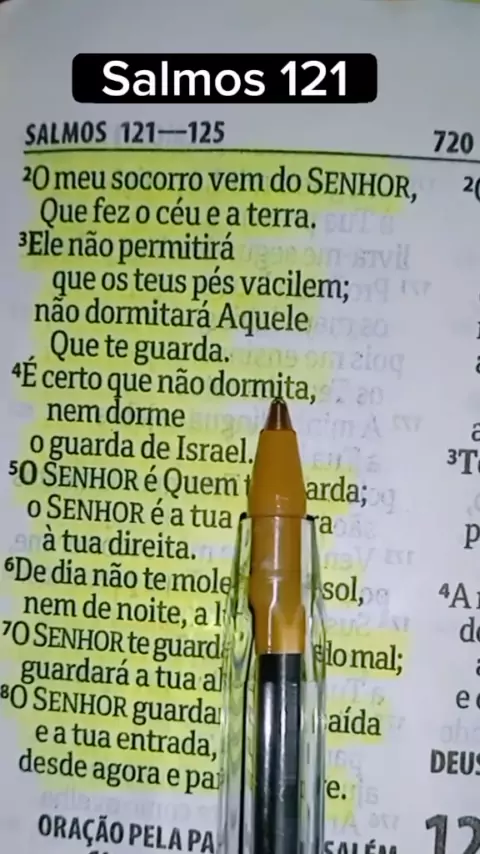 Salmos 121
SALMOS 121—125
720
²O meu socorro vem do SENHOR,
Que fez o céu e a terra.
³Ele não permitirá
que os teus pés vacilem;
não dormitará Aquele
Que te guarda.
⁴É certo que não dormita,
nem dorme
o guarda de Israel.
⁵O SENHOR é Quem arda;
o SENHOR é a tua ra
à tua direita.
⁶De dia não te mole sol,
nem de noite, a l
⁷O SENHOR te guard do mal;
guardará a tua al
⁸O SENHOR guarda aída
e a tua entrada,
desde agora e pa e.
ORAÇÃO PELA PA SALÉM
³T
p
⁴A
d
e
DEUS
12